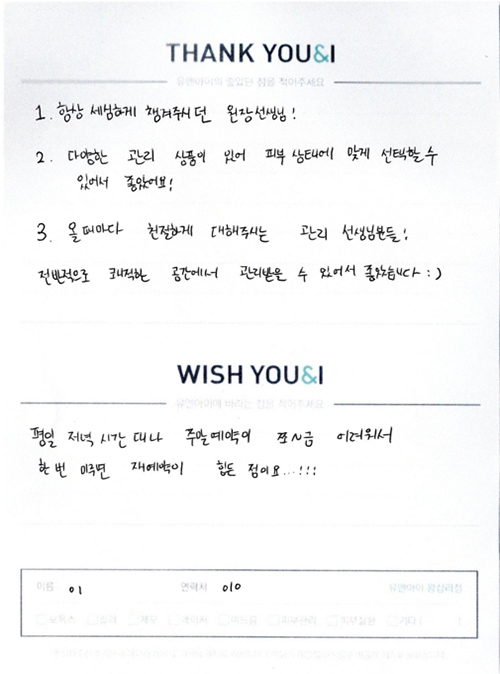 THANK YOU&I
유앤아이의 좋았던 점을 적어주세요
1. 항상 세심하게 챙겨주시던 원장선생님!
2. 다양한 관리 상품이 있어 피부 상태에 맞게 선택할 수
있어서 좋았어요!
3. 올때마다 친절하게 대해주시는 관리 선생님분들!
전반적으로 쾌적한 공간에서 관리받을 수 있어서 좋았습니다 :)
WISH YOU&I
유앤아이에 바라는 점을 적어주세요
평일 저녁 시간대나 주말예약이 쪼~금 어려워서
한번 미루면 재예약이 힘든 점이요...!!!
이름 이 연락처 010 유앤아이 왕십리점
보톡스 필러 제모 레이저 여드름 피부관리 피부질환 기타 ( )